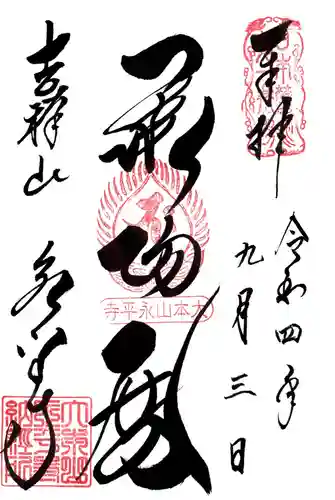 奉拝
令和四年
九月三日
承陽殿
大本山永平寺
吉祥山
永平寺